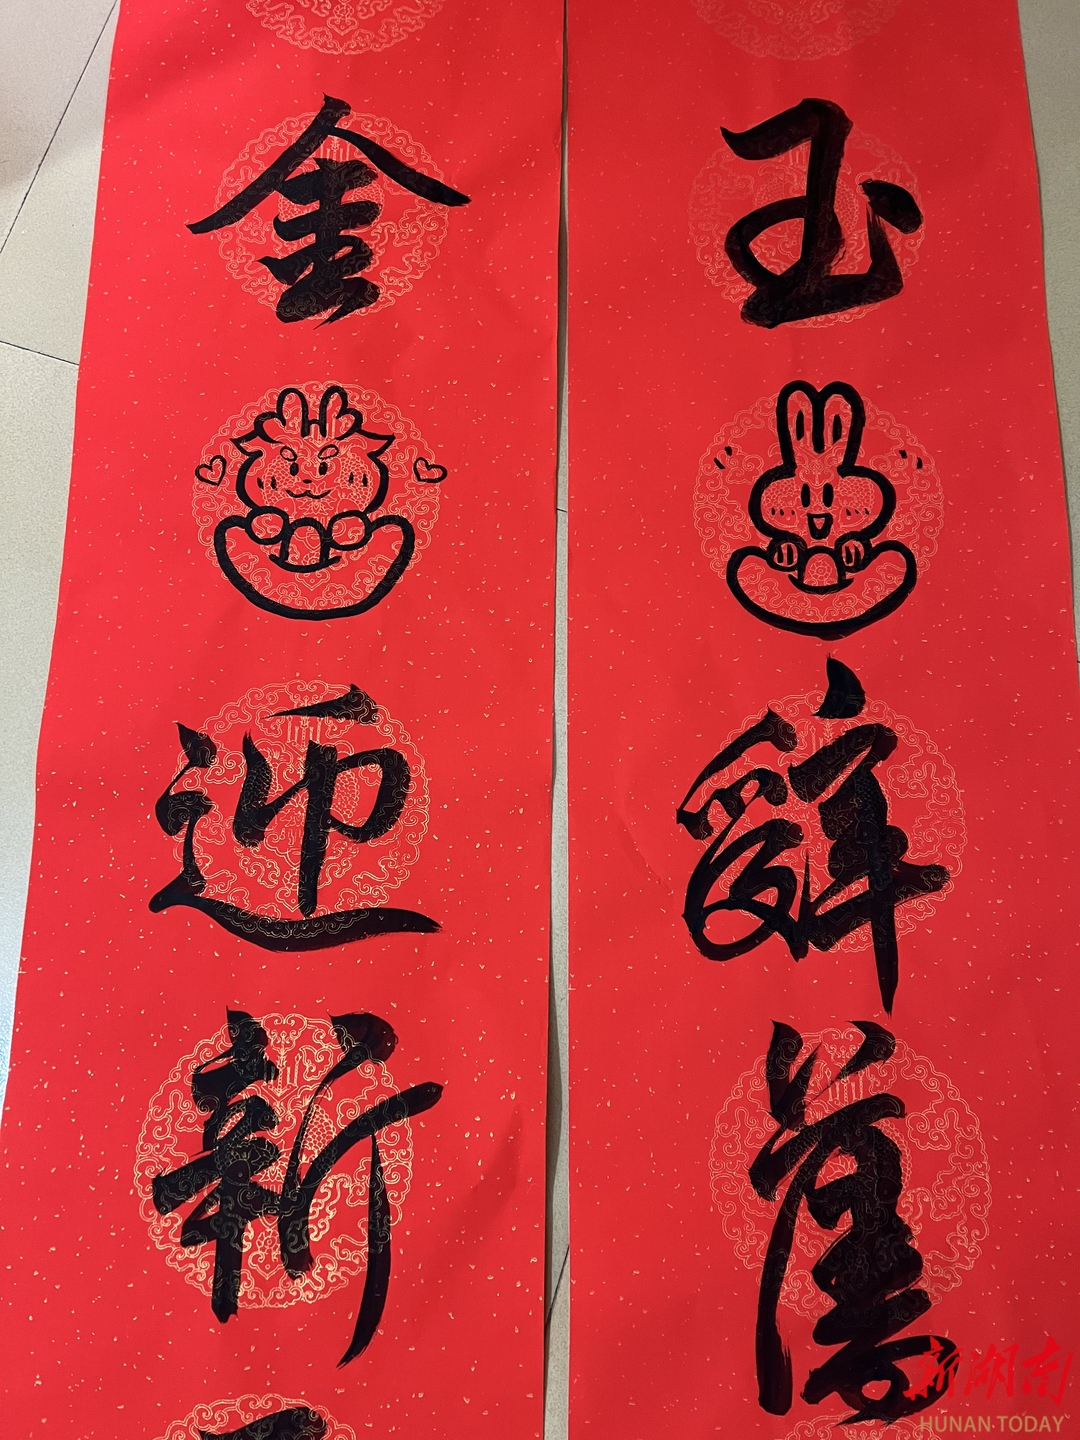 玉辭舊
金迎新
新湖南
HUNAN·TODAY